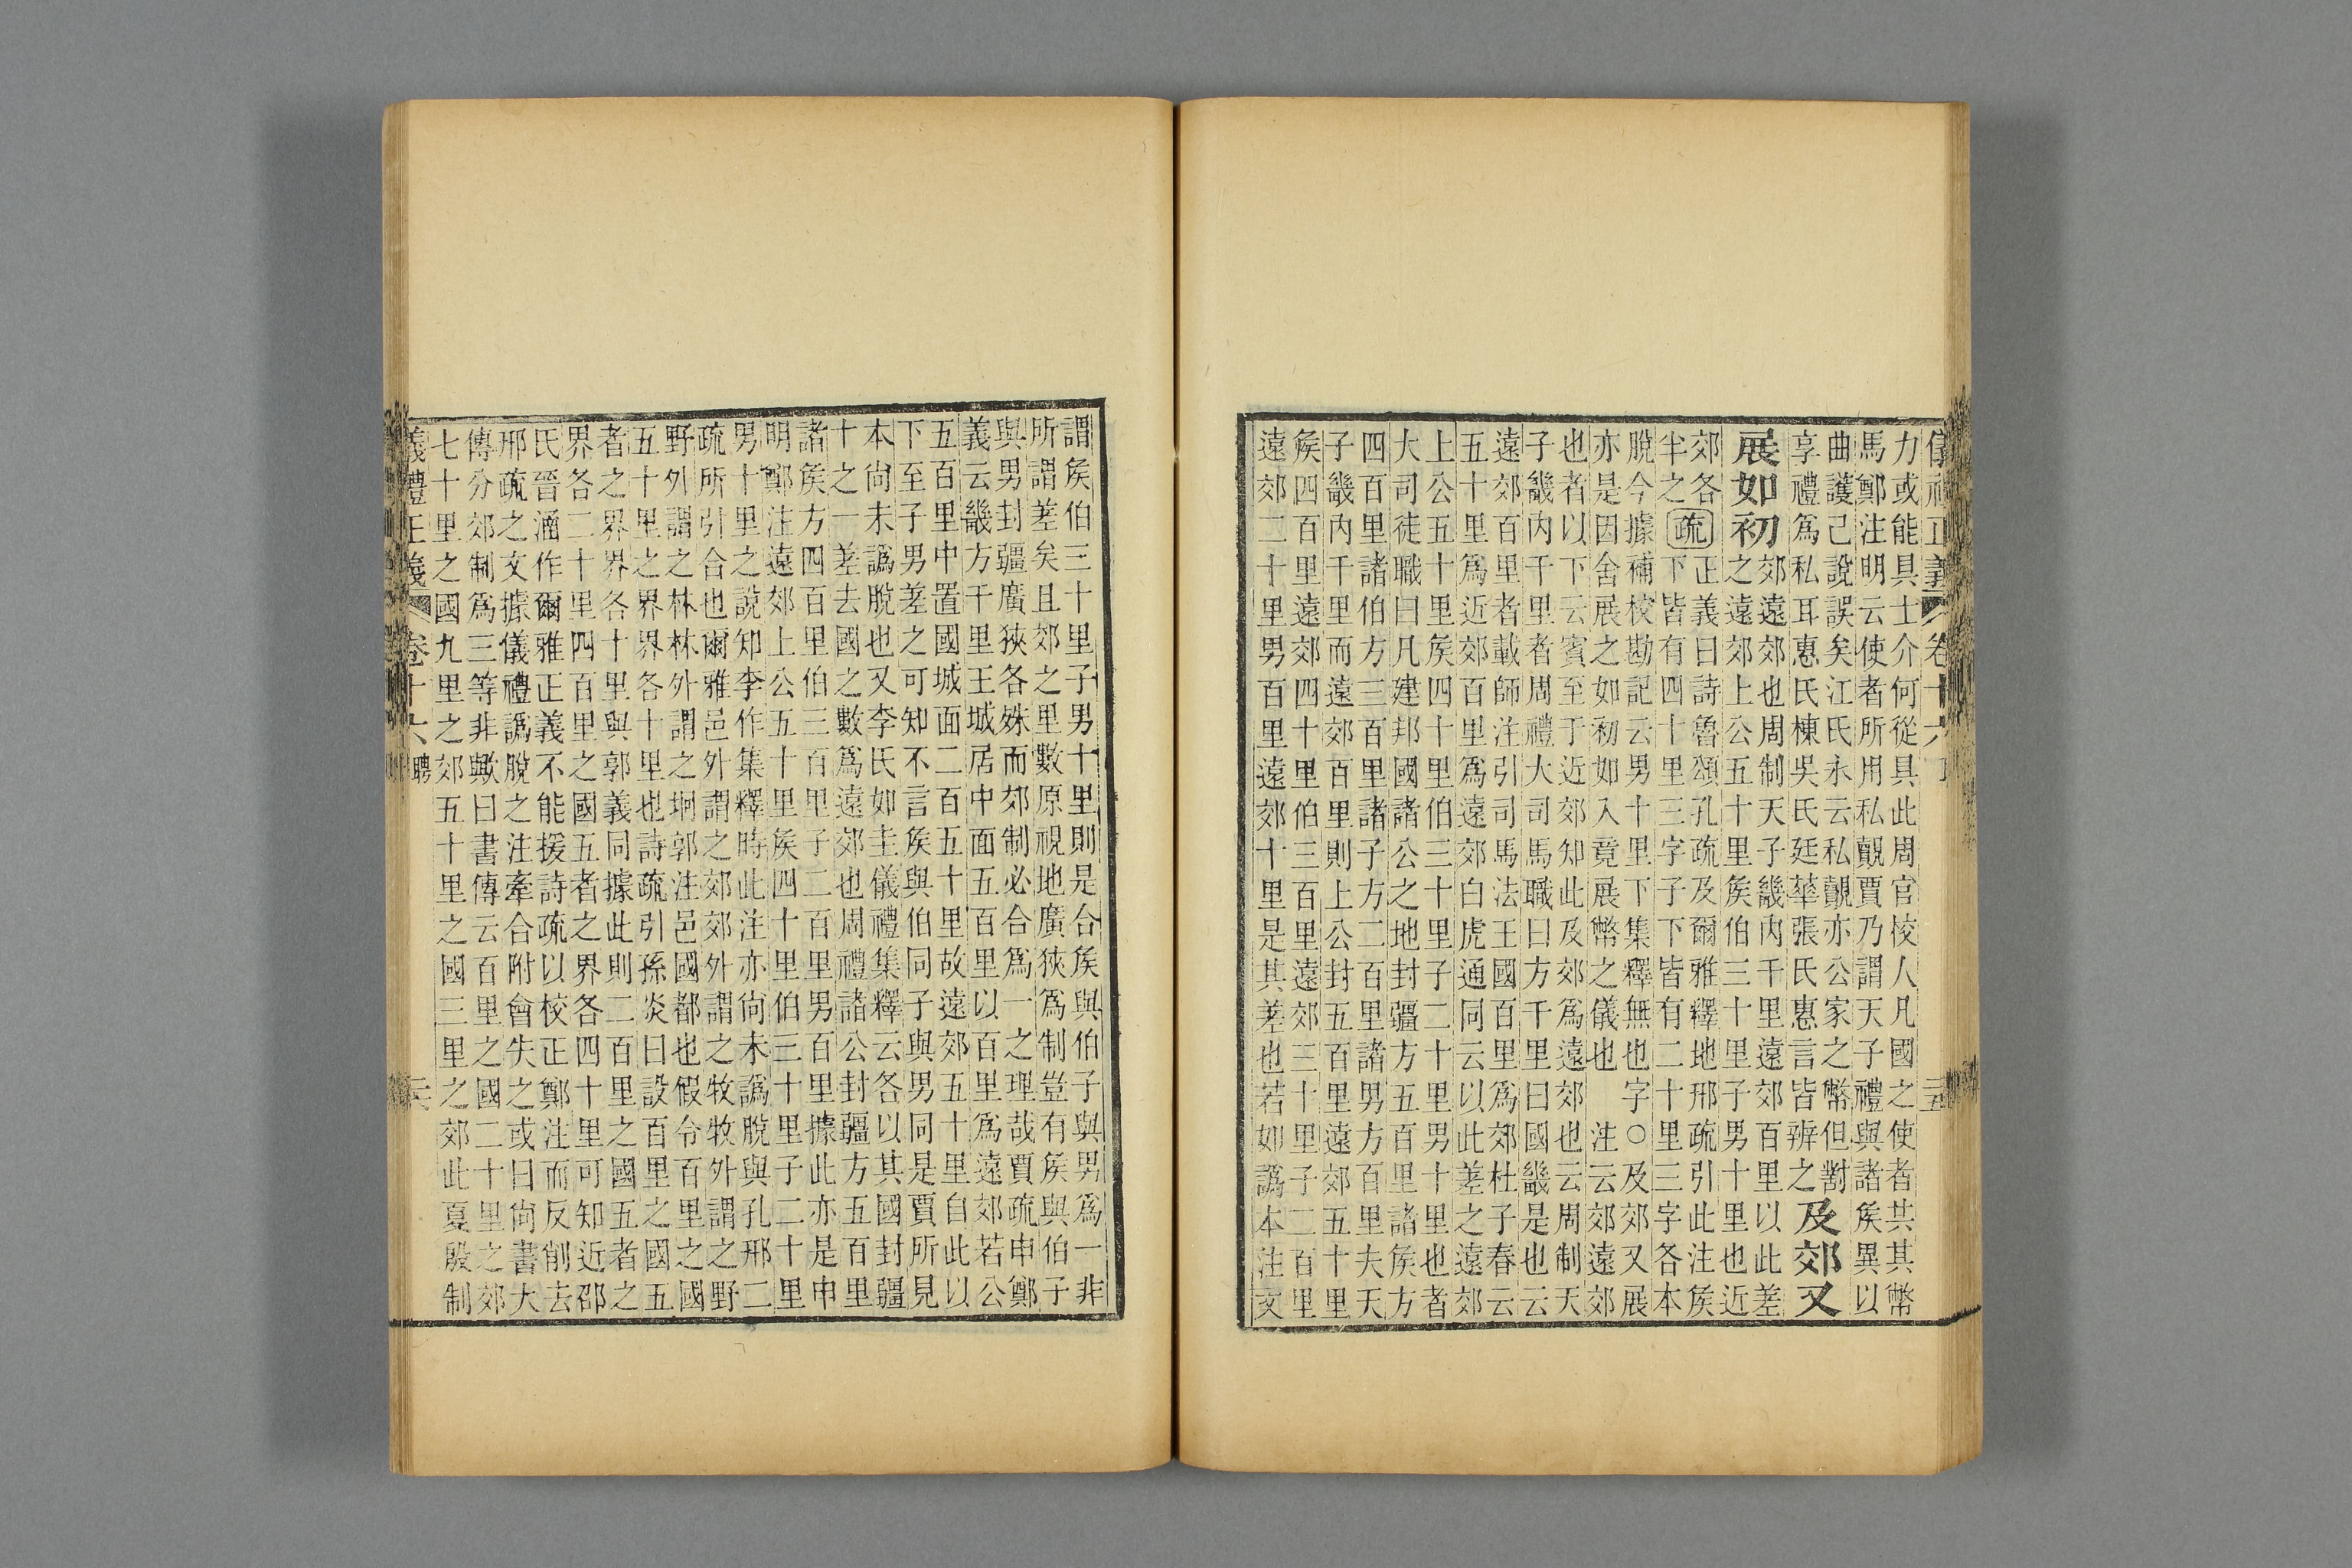 儀禮正義 卷十六 三五
力或能具士介何從具此周官校人凡國之使者共其幣
馬鄭注明云使者所用私覿賈乃謂天子禮與諸矦異以
曲護己說誤矣江氏永云私覿亦公家之幣但劄
享禮爲私耳惠氏棟吳氏廷華張氏惠言皆辨之
及郊又
展如初
郊遠郊也周制天子畿內千里遠郊百里以此差
之遠郊上公五十里矦伯三十里子男十里也近
郊各
半之
疏
正義曰詩魯頌孔疏及爾雅釋地邢疏引此注矦
下皆有四十里三字子下皆有二十里三字各本
脫今據補校勘記云男十里下集釋無也字○及郊又展
亦是因舍展之如初如入竟展幣之儀也 注云郊遠郊
也者以下云賓至于近郊知此及郊爲遠郊也云周制天
子畿內千里者周禮大司馬職曰方千里曰國畿是也云
遠郊百里者載師注引司馬法王國百里爲郊杜子春云
五十里爲近郊百里爲遠郊白虎通同云以此差之遠郊
上公五十里矦四十里伯三十里子二十里男十里也者
大司徒職曰凡建邦國諸公之地封疆方五百里諸矦方
四百里諸伯方三百里諸子方二百里諸男方百里夫天
子畿內千里而遠郊百里則上公封五百里遠郊五十里
矦四百里遠郊四十里伯三百里遠郊三十里子二百里
遠郊二十里男百里遠郊十里是其差也若如譌本注文
謂矦伯三十里子男十里則是合矦與伯子與男爲一非
所謂差矣且郊之里數原視地廣狹爲制豈有矦與伯子
與男封疆廣狹各殊而郊制必合爲一之理哉賈疏申鄭
義云畿方千里王城居中面五百里以百里爲遠郊若公
五百里中置國城面二百五十里故遠郊五十里自此以
下至子男差之可知不言矦與伯同子與男同是賈所見
本尙未譌脫也又李氏如圭儀禮集釋云各以其國封疆
十之一差去國之數爲遠郊也周禮諸公封疆方五百里
諸矦方四百里伯三百里子二百里男百里據此亦是申
明鄭注遠郊上公五十里矦四十里伯三十里子二十里
男十里之說知李作集釋時此注亦尙未譌脫與孔邢二
疏所引合也爾雅邑外謂之郊郊外謂之牧牧外謂之野
野外謂之林林外謂之坰郭注邑國都也假令百里之國
五十里之界界各十里也詩疏引孫炎曰設百里之國五
者之界界各十里與郭義同據此則二百里之國五者之
界各二十里四百里之國五者之界各四十里可知近邵
氏晉涵作爾雅正義不能援詩疏以校正鄭注而反削去
邢疏之文據儀禮譌脫之注牽合附會失之或曰尙書大
傳分郊制爲三等非歟曰書傳云百里之國二十里之郊
七十里之國九里之郊五十里之國三里之郊此夏殷制
義禮正義 卷十六 聘